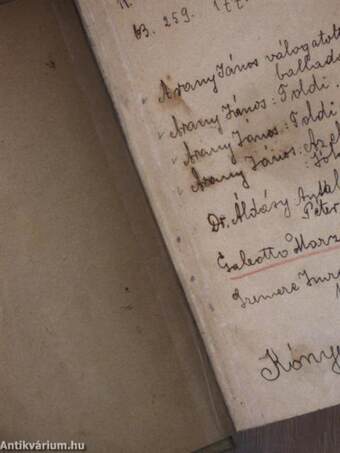 63. 259.
Arany János válogatott
ballad
Arany János: Toldi.
Arany János: Toldi
Arany János: Az el
Dr. Áldásy Antal
Péter
Galeotto Marz
Szemere
Könyv
Antikvárium.hu